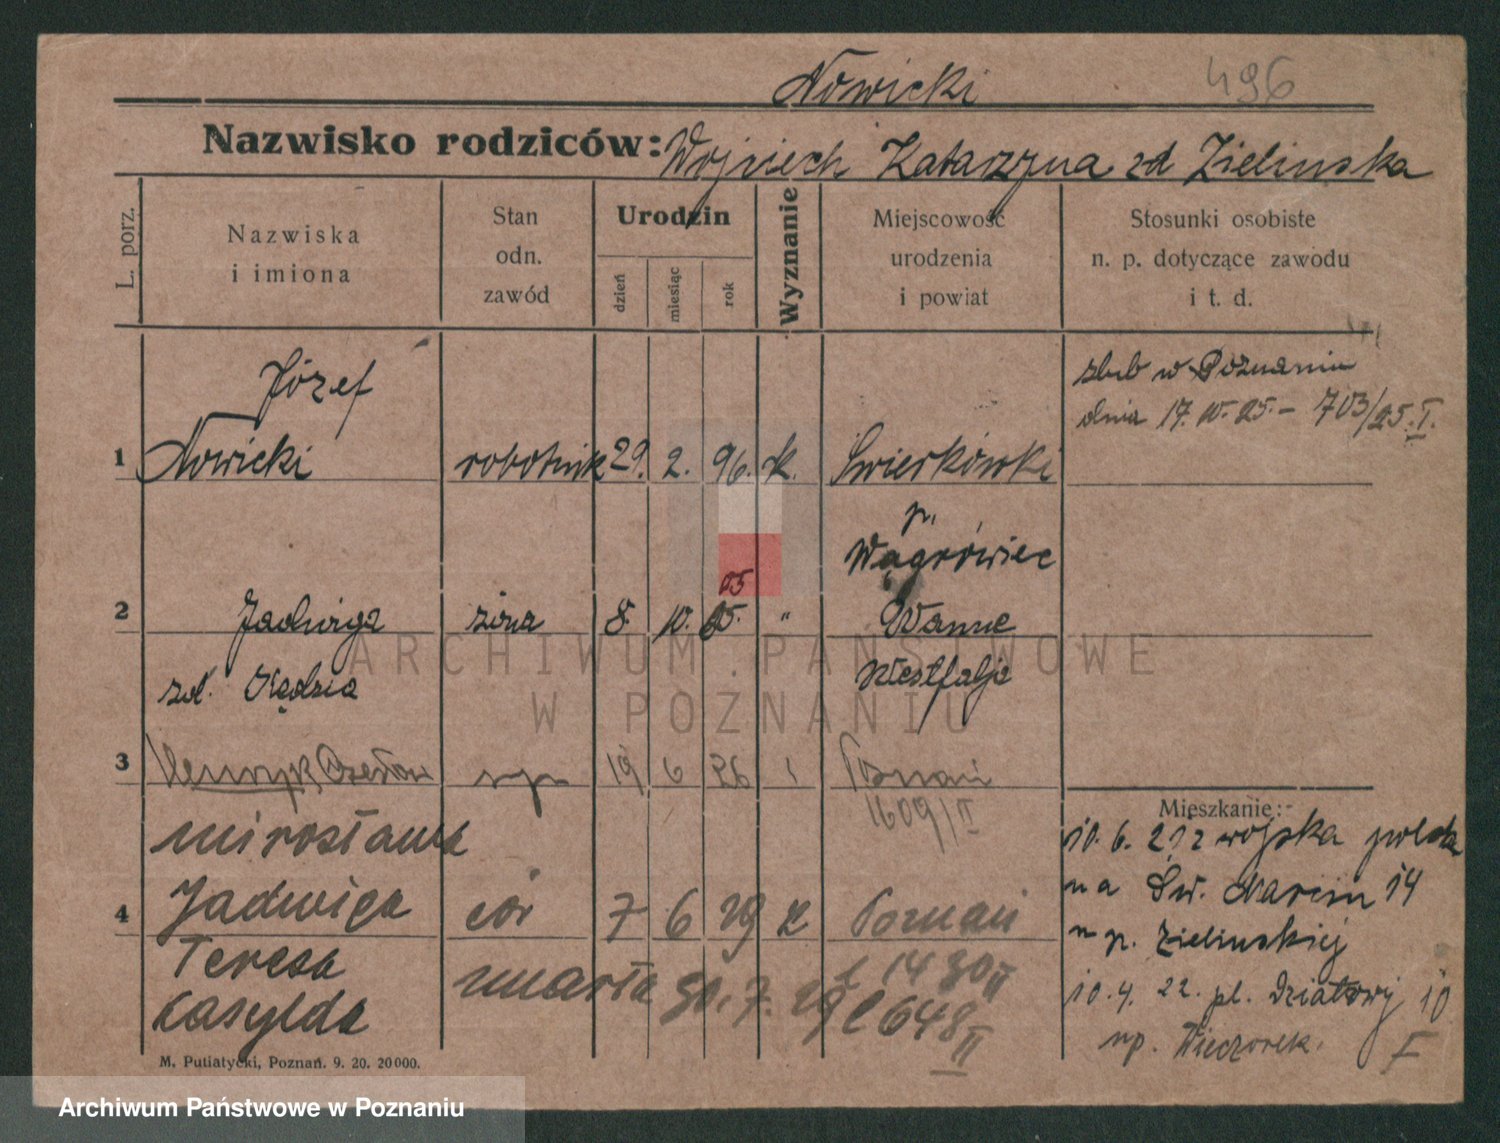 Nowicki 496
Nazwisko rodziców: Wojciech Katarzyna zd Zielinska
L. porz.
Nazwiska
i imiona
Stan
odn.
zawód
Urodzin
dzień
miesiąc
rok
Wyznanie
Miejscowość
urodzenia
i powiat
Stosunki osobiste
n. p. dotyczące zawodu
i t. d.
ślub w Poznaniu
dnia 17. 10. 25. - 703/25. I.
Józef
1 Nowicki robotnik 29. 2. 96. k. Swierkówki
p.
Wągrówiec
05
2 Jadwiga żona 8. 10. 05. " Wanne
zd. Kędzia Westfalja
3 Henryk Czesław syn 19 6 26 Poznań
1609/II
Mirosława
4 Jadwiga cór 7 6 29 k Poznań
Teresa 1430 II
Kasylda umarła 30. 7. 29 648 II
Mieszkanie:-
10. 6. 21 z wojska polsk
na Św. Marcin 14
p. Zielinskiej
10. 4. 22. pl. Działowy 10
np. Wieczorek. F
M. Putiatycki, Poznań. 9. 20. 20000.
ARCHIWUM PAŃSTWOWE
W POZNANIU
Archiwum Państwowe w Poznaniu